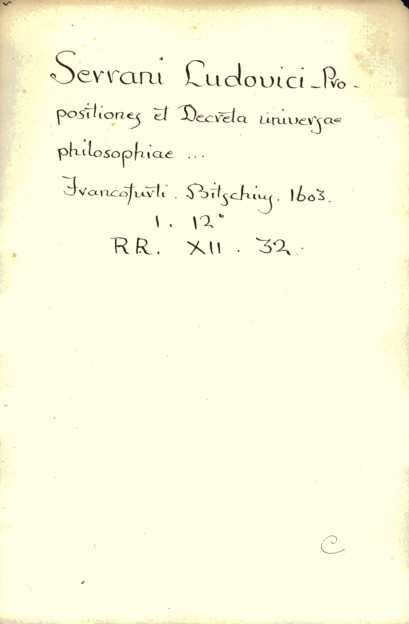 Serrani Ludovici - Pro-
positiones et Decreta universae
philosophiae ...
Francofurti. Bitschius. 1603.
1. 12°
RR. XII. 32.
C